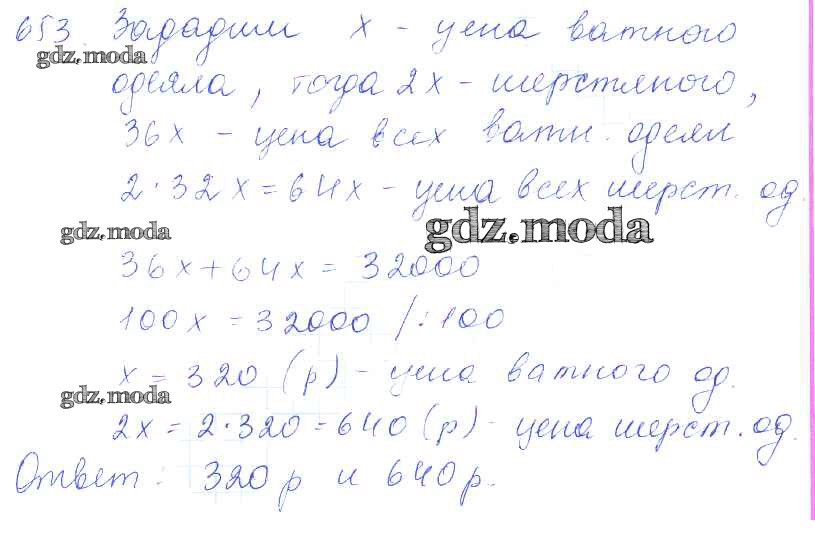 653 Зададим x - цена ватного
gdz.moda
одеяла, тогда 2x - шерстяного,
36x - цена всех ватн. одеял
2·32x = 64x - цена всех шерст. од.
gdz.moda
gdz.moda
36x + 64x = 32000
100x = 32000 /:100
x = 320 (р) - цена ватного од.
gdz.moda
2x = 2·320 = 640 (р) - цена шерст. од.
Ответ: 320 р и 640 р.